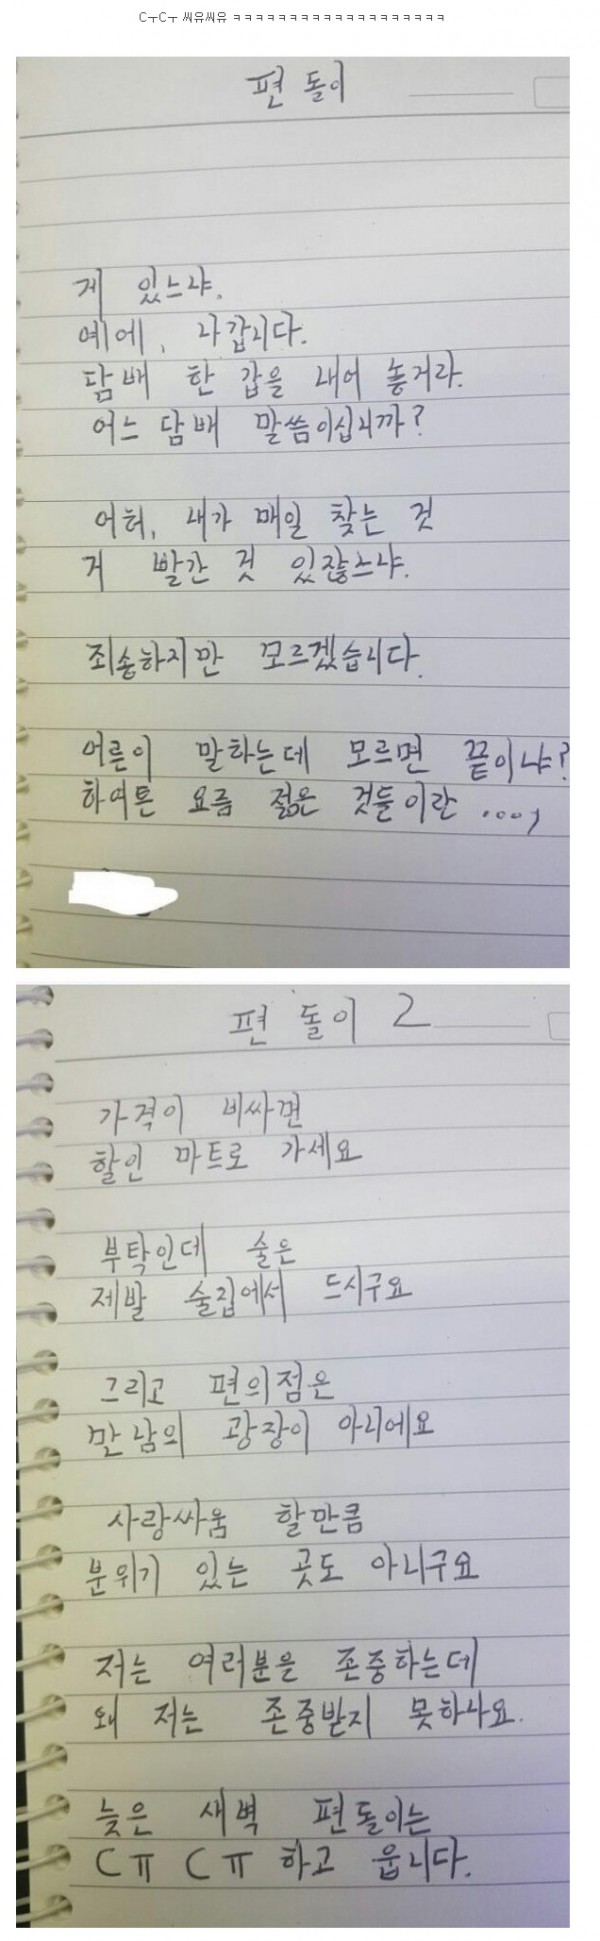 CㅜCㅜ 씨유씨유 ㅋㅋㅋㅋㅋㅋㅋㅋㅋㅋㅋㅋㅋㅋㅋㅋㅋㅋㅋ
편 돌이
게 있느냐.
예에, 나갑니다.
담배 한 갑을 내어 놓거라.
어느 담배 말씀이십니까?
어허, 내가 매일 찾는 것
거 빨간 것 있잖느냐.
죄송하지만 모르겠습니다.
어른이 말하는데 모르면 끝이냐?
하여튼 요즘 젊은 것들이란 ....,
편 돌이 2
가격이 비싸면
할인 마트로 가세요
부탁인데 술은
제발 술집에서 드시구요
그리고 편의점은
만남의 광장이 아니에요
사랑싸움 할만큼
분위기 있는 곳도 아니구요
저는 여러분을 존중하는데
왜 저는 존중받지 못하나요.
늦은 새벽 편돌이는
CㅠCㅠ 하고 웁니다.